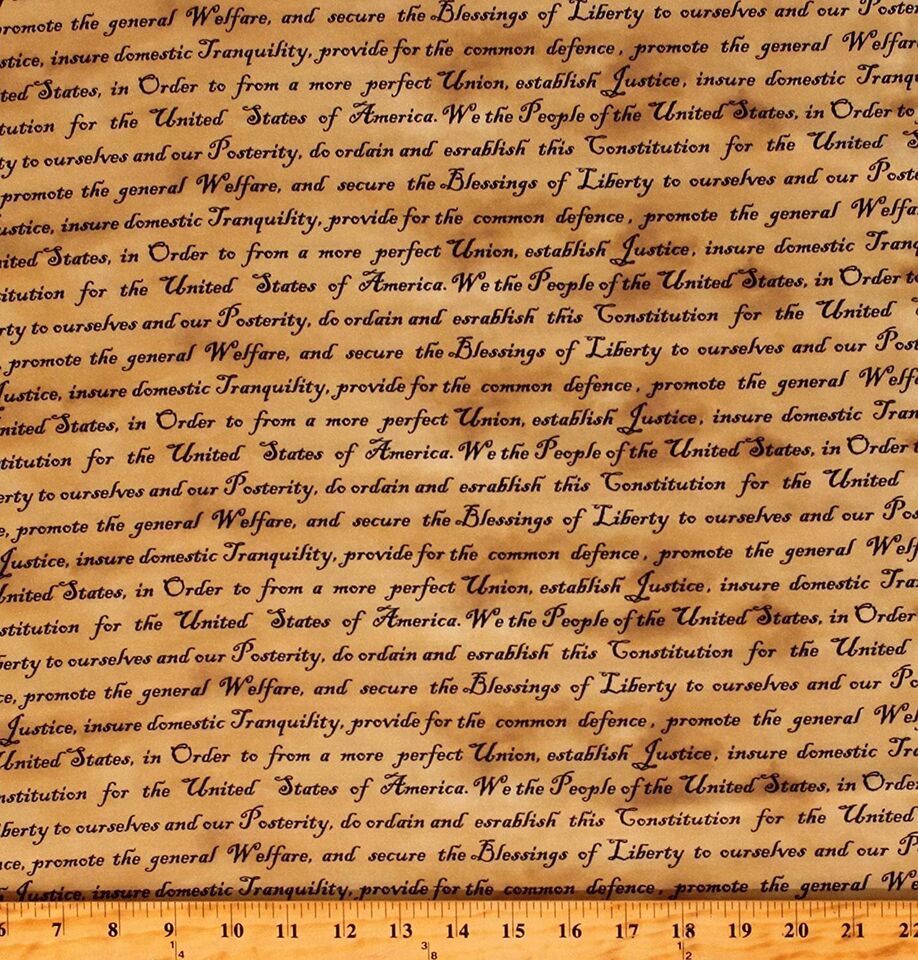 promote the general Welfare, and secure the Blessings of Liberty to ourselves and our Poster
stice, insure domestic Tranquility, provide for the common defence, promote the general Welfare
ted States, in Order to from a more perfect Union, establish Justice, insure domestic Tranq
tution for the United States of America. We the People of the United States, in Order to
ty to ourselves and our Posterity, do ordain and esrablish this Constitution for the United S
promote the general Welfare, and secure the Blessings of Liberty to ourselves and our Poste
ustice, insure domestic Tranquility, provide for the common defence, promote the general Welfa
nited States, in Order to from a more perfect Union, establish Justice, insure domestic Tranq
titution for the United States of America. We the People of the United States, in Order to
rty to ourselves and our Posterity, do ordain and esrablish this Constitution for the United
, promote the general Welfare, and secure the Blessings of Liberty to ourselves and our Post
Justice, insure domestic Tranquility, provide for the common defence, promote the general Welf
nited States, in Order to from a more perfect Union, establish Justice, insure domestic Tran
titution for the United States of America. We the People of the United States, in Order
erty to ourselves and our Posterity, do ordain and esrablish this Constitution for the United
e, promote the general Welfare, and secure the Blessings of Liberty to ourselves and our Pos
Justice, insure domestic Tranquility, provide for the common defence, promote the general Welf
United States, in Order to from a more perfect Union, establish Justice, insure domestic Tra
stitution for the United States of America. We the People of the United States, in Order
berty to ourselves and our Posterity, do ordain and esrablish this Constitution for the United
ce, promote the general Welfare, and secure the Blessings of Liberty to ourselves and our Po
Justice, insure domestic Tranquility, provide for the common defence, promote the general Wel
United States, in Order to from a more perfect Union, establish Justice, insure domestic Tra
nstitution for the United States of America. We the People of the United States, in Order
berty to ourselves and our Posterity, do ordain and esrablish this Constitution for the United
nce, promote the general Welfare, and secure the Blessings of Liberty to ourselves and our P
Justice, insure domestic Tranquility, provide for the common defence, promote the general We
6 7 8 9 10 11 12 13 14 15 16 17 18 19 20 21 22
1/4 3/8 1/2